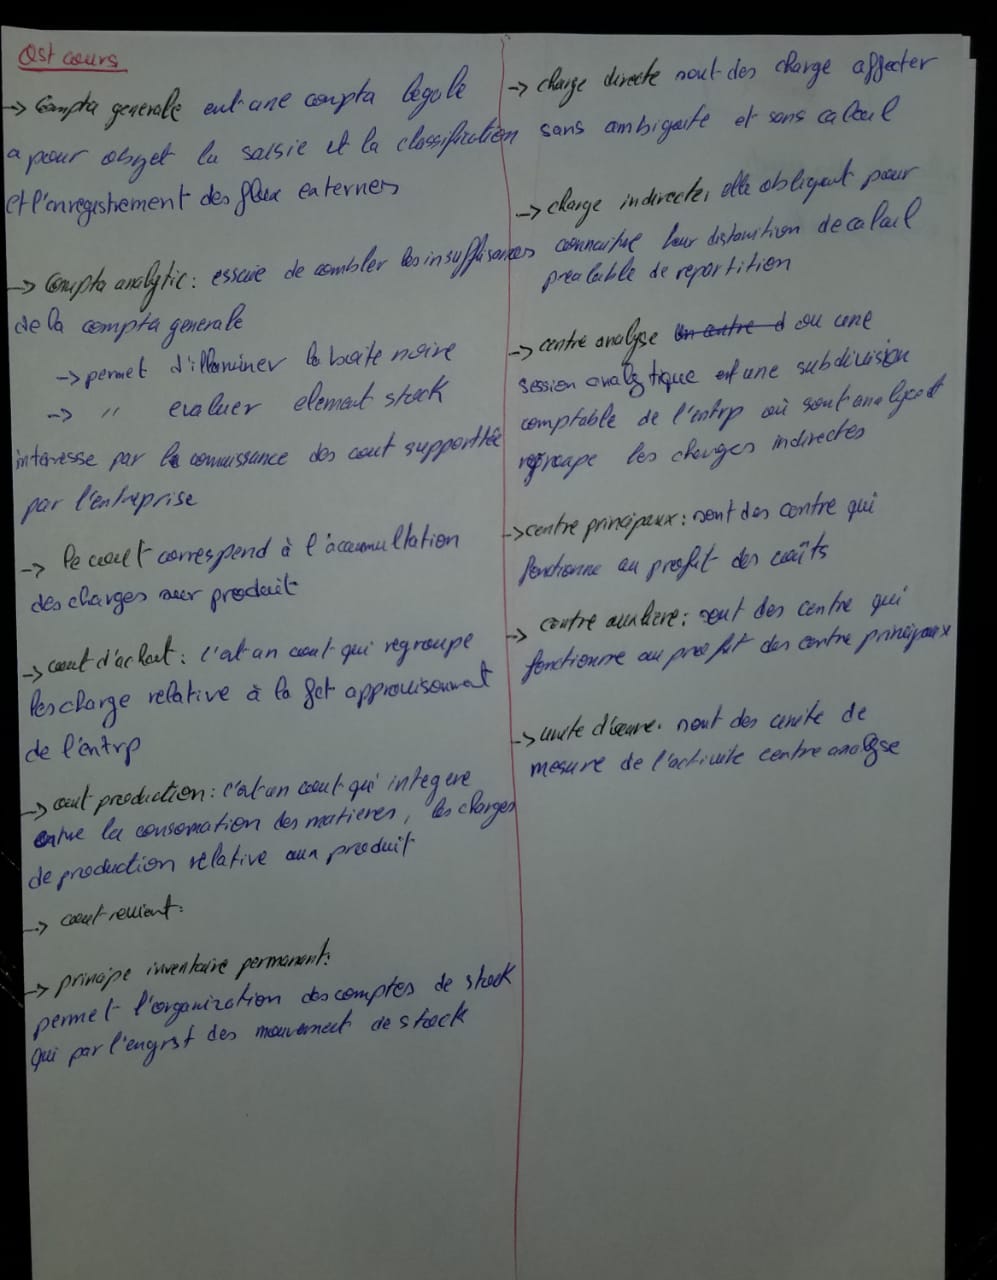 Qst cours
-> Compta generale est une compta légale
a pour objet la saisie et la classification
et l'enregistrement des flux externes
-> Compta analytic: essaie de combler les insuffisances
de la compta generale
-> permet d'illuminer la boite noire
-> " evaluer element stock
intéresse par la connaissance des cout supporttée
par l'entreprise
-> le cout correspend à l'accumulation
des charges sur produit
-> cout d'achat: c'est un cout qui regroupe
les charge relative à la fct approvisonment
de l'entrp
-> cout production: c'est un cout qui integere
entre la consomation des matieres, les charges
de production relative aux produit
-> cout revient:
-> principe inventaire permanent:
permet l'organization des comptes de stock
qui par l'engrst des mouvement de stock
-> charge directe sont des charge affecter
sans ambiguite et sans calcul
-> charge indirecte, elle obligent pour
connaitre leur distinition de calcul
prealable de repartition
-> centre analyse ou une
session analytique est une subdivision
comptable de l'entrp où sont analyse et
regroupe les charges indirectes
-> centre principaux: sont des centre qui
fonctionne au profit des coûts
-> centre auxliere: sont des centre qui
fonctionne au profit des centre principaux
-> unite d'oeuvre. sont des unite de
mesure de l'activite centre analyse